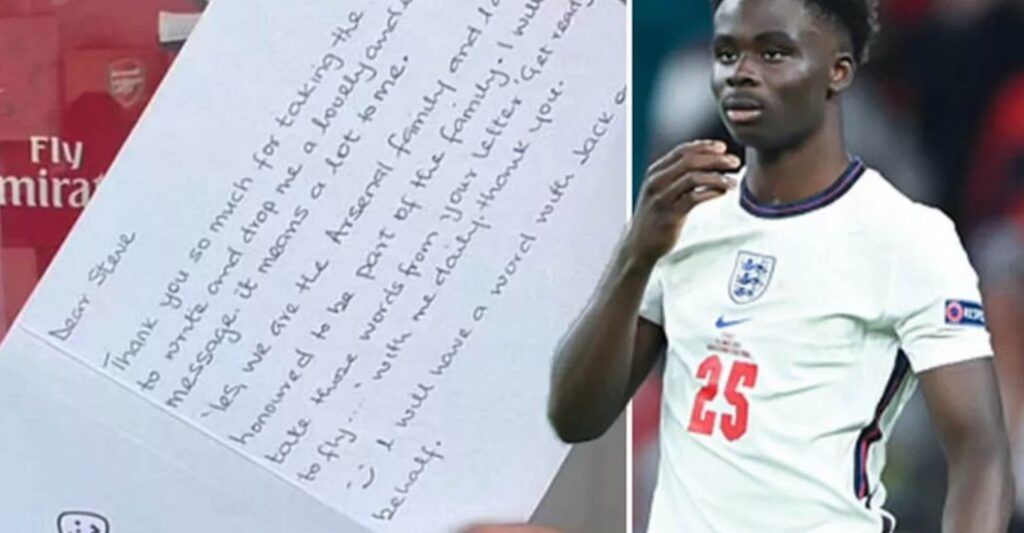 Fly
Dear Steve
Thank you so much for taking the
to write and drop me a lovely and
message. it means a lot to me.
Yes, we are the Arsenal family and I
honoured to be part of the family. I will
take those words from your letter 'Get ready
to fly.... with me daily. thank you.
I will have a word with Jack
behalf.
25
RESPE